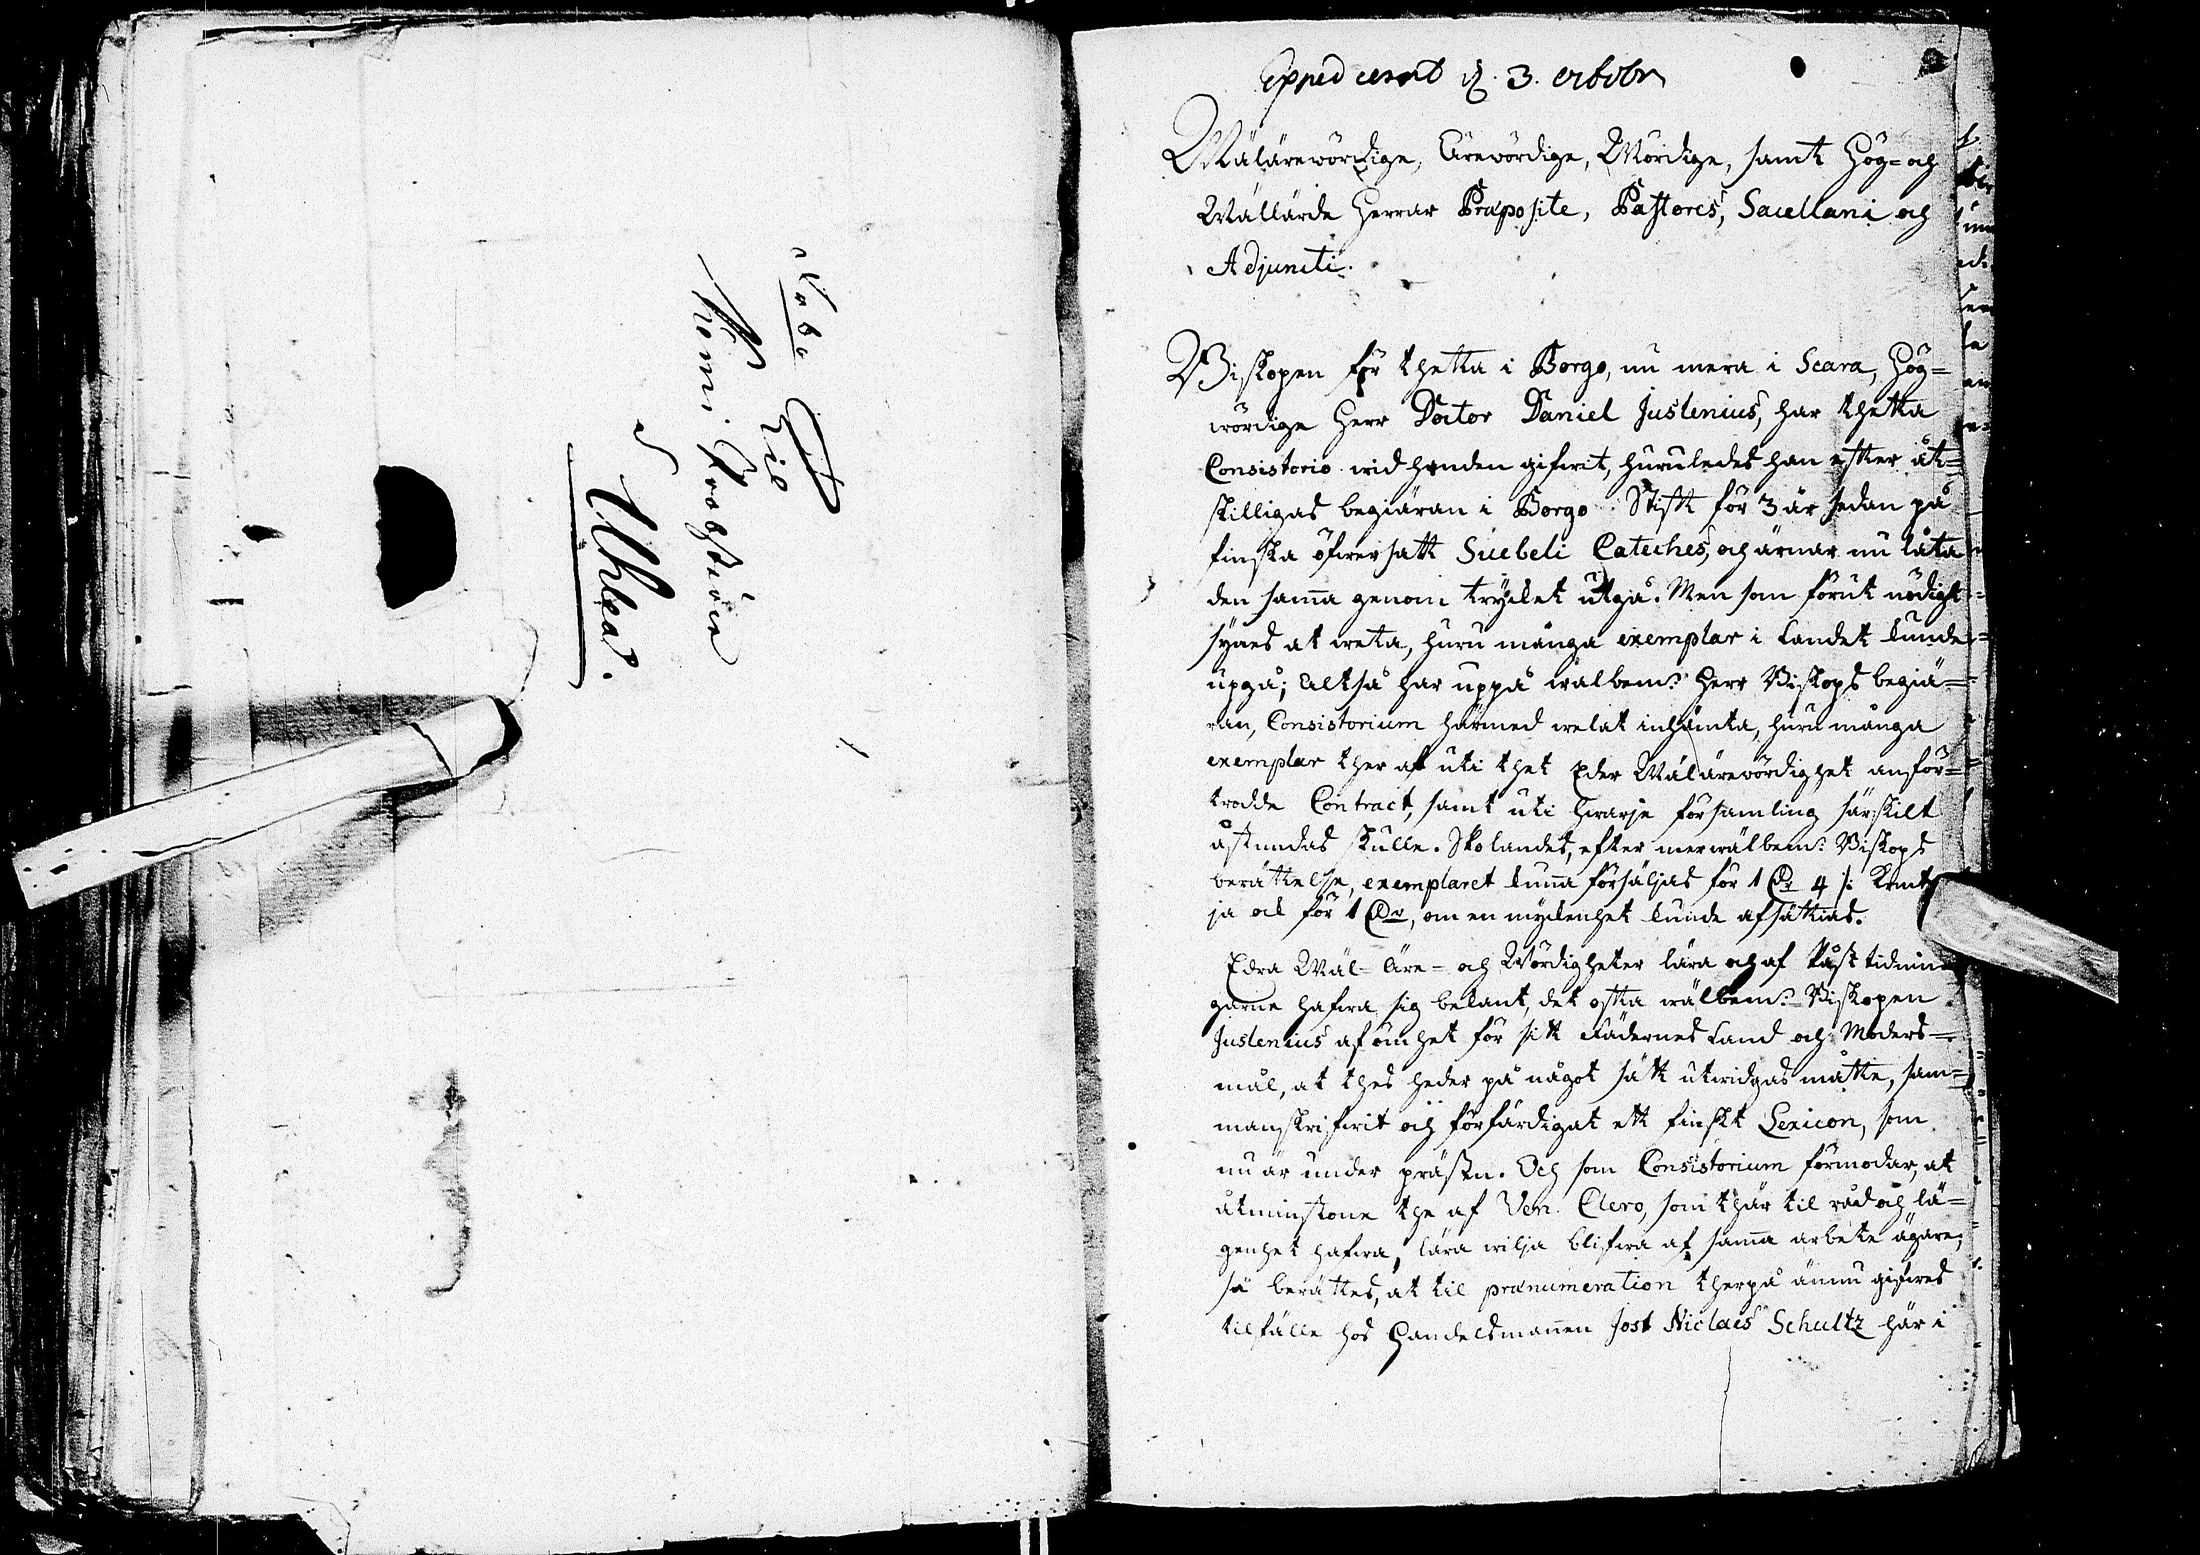 Til
Kemi Probsterie
Uhleå.
d. 3. octobr
Wälärewördige, Ärewördige, Wördige, samt Hög- och
Wällärde Herrar Præposite, Pastores, Sacellani och
Adjuncti.
Biskopen för thetta i Borgo, nu mera i Scara, Hög-
wördige Herr Doctor Daniel Juslenius, har thetta
Consistorio wid handen gifwit, huruledes han efter åt-
skilligas begiäran i Borgo Stift för 3 år sedan på
finska öfwersatt Suebeli Cateches, och ärnar nu låta
den sam̄a genom trycket utgå. Men som förut nödigt
synes at weta, huru många exemplar i landet kunde
upgå; Altså har uppå wälbem:te Herr Biskops begiä-
ran, Consistorium härmed welat inhämta, huru många
exemplar ther af uti thet Eder Wälärewördighet anför-
trodde Contract, samt uti hwarje församling särskilt
åstundas skulle. Skolandes, efter merwälbem:te Biskops
berättelse, exemplaret kun̄a försäljas för 1 Dr 4 s: Kmt,
ja ock för 1 Dr, om en myckenhet kunde afsättias.
Edra Wäl- Äre- och Wördigheter lära och af Påst tidnin-
garne hafwa sig bekant, det ofta wälbem:te Biskopen
Juslenius af ömhet för sitt Fädernes Land och Moders-
mål, at thes heder på något sätt utwidgas måtte, sam-
manskrifwit och förfärdigat ett finskt Lexicon, som
nu är under präsen. Och som Consistorium förmodar, at
åtminstone the af Ven. Clero, som thär til råd och lä-
genhet hafwa, lära wilja blifwa af sam̄a arbete ägare;
så berättes, at til prænumeration therpå ännu gifwes
tilfälle hos Handelsman̄en Jost Niclaes Schultz här i